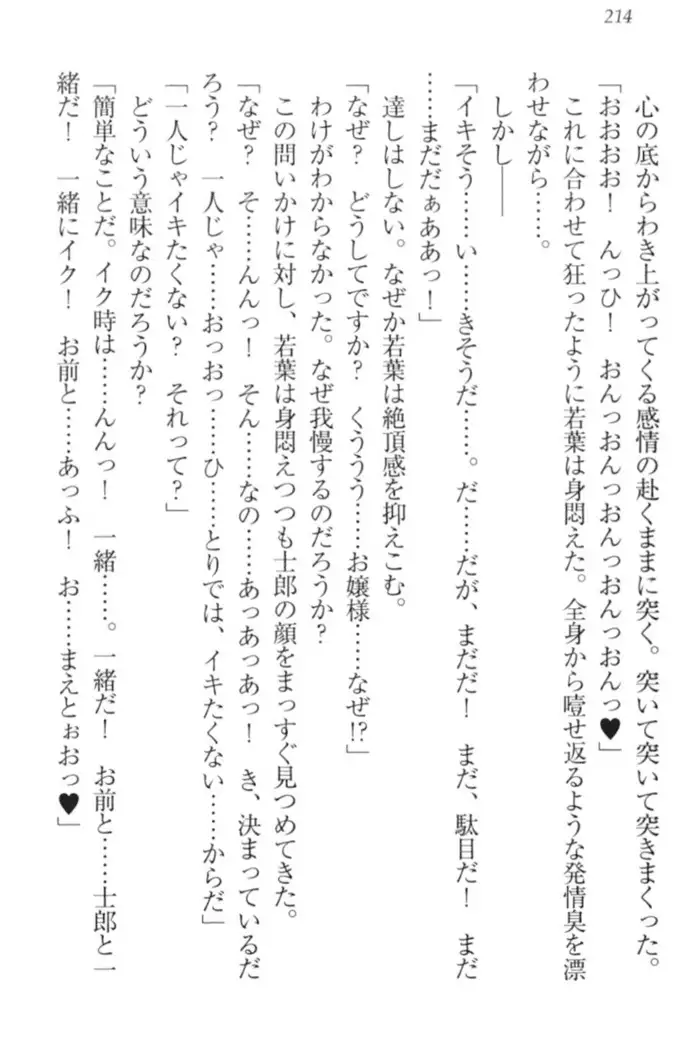 214
心の底からわき上がってくる感情の赴くままに突く。突いて突いて突きまくった。
「おおおお！　んっひ！　おんっおんっおんっおんっ♥」
これに合わせて狂ったように若葉は身悶えた。全身から噎せ返るような発情臭を漂
わせながら……。
しかし――
「イキそう……い……きそうだ……。だ……だが、まだだ！　まだ、駄目だ！　まだ
……まだだぁああっ！」
達しはしない。なぜか若葉は絶頂感を抑えこむ。
「なぜ？　どうしてですか？　くううう……お嬢様……なぜ!?」
わけがわからなかった。なぜ我慢するのだろうか？
この問いかけに対し、若葉は身悶えつつも士郎の顔をまっすぐ見つめてきた。
「なぜ？　そ……んんっ！　そん……なの……あっあっあっ！　き、決まっているだ
ろう？　一人じゃ……おっおっ……ひ……とりでは、イキたくない……からだ」
「一人じゃイキたくない？　それって？」
どういう意味なのだろうか？
「簡単なことだ。イク時は……んんっ！　一緒……。一緒だ！　お前と……士郎と一
緒だ！　一緒にイク！　お前と……あっふ！　お……まえとぉおっ♥」